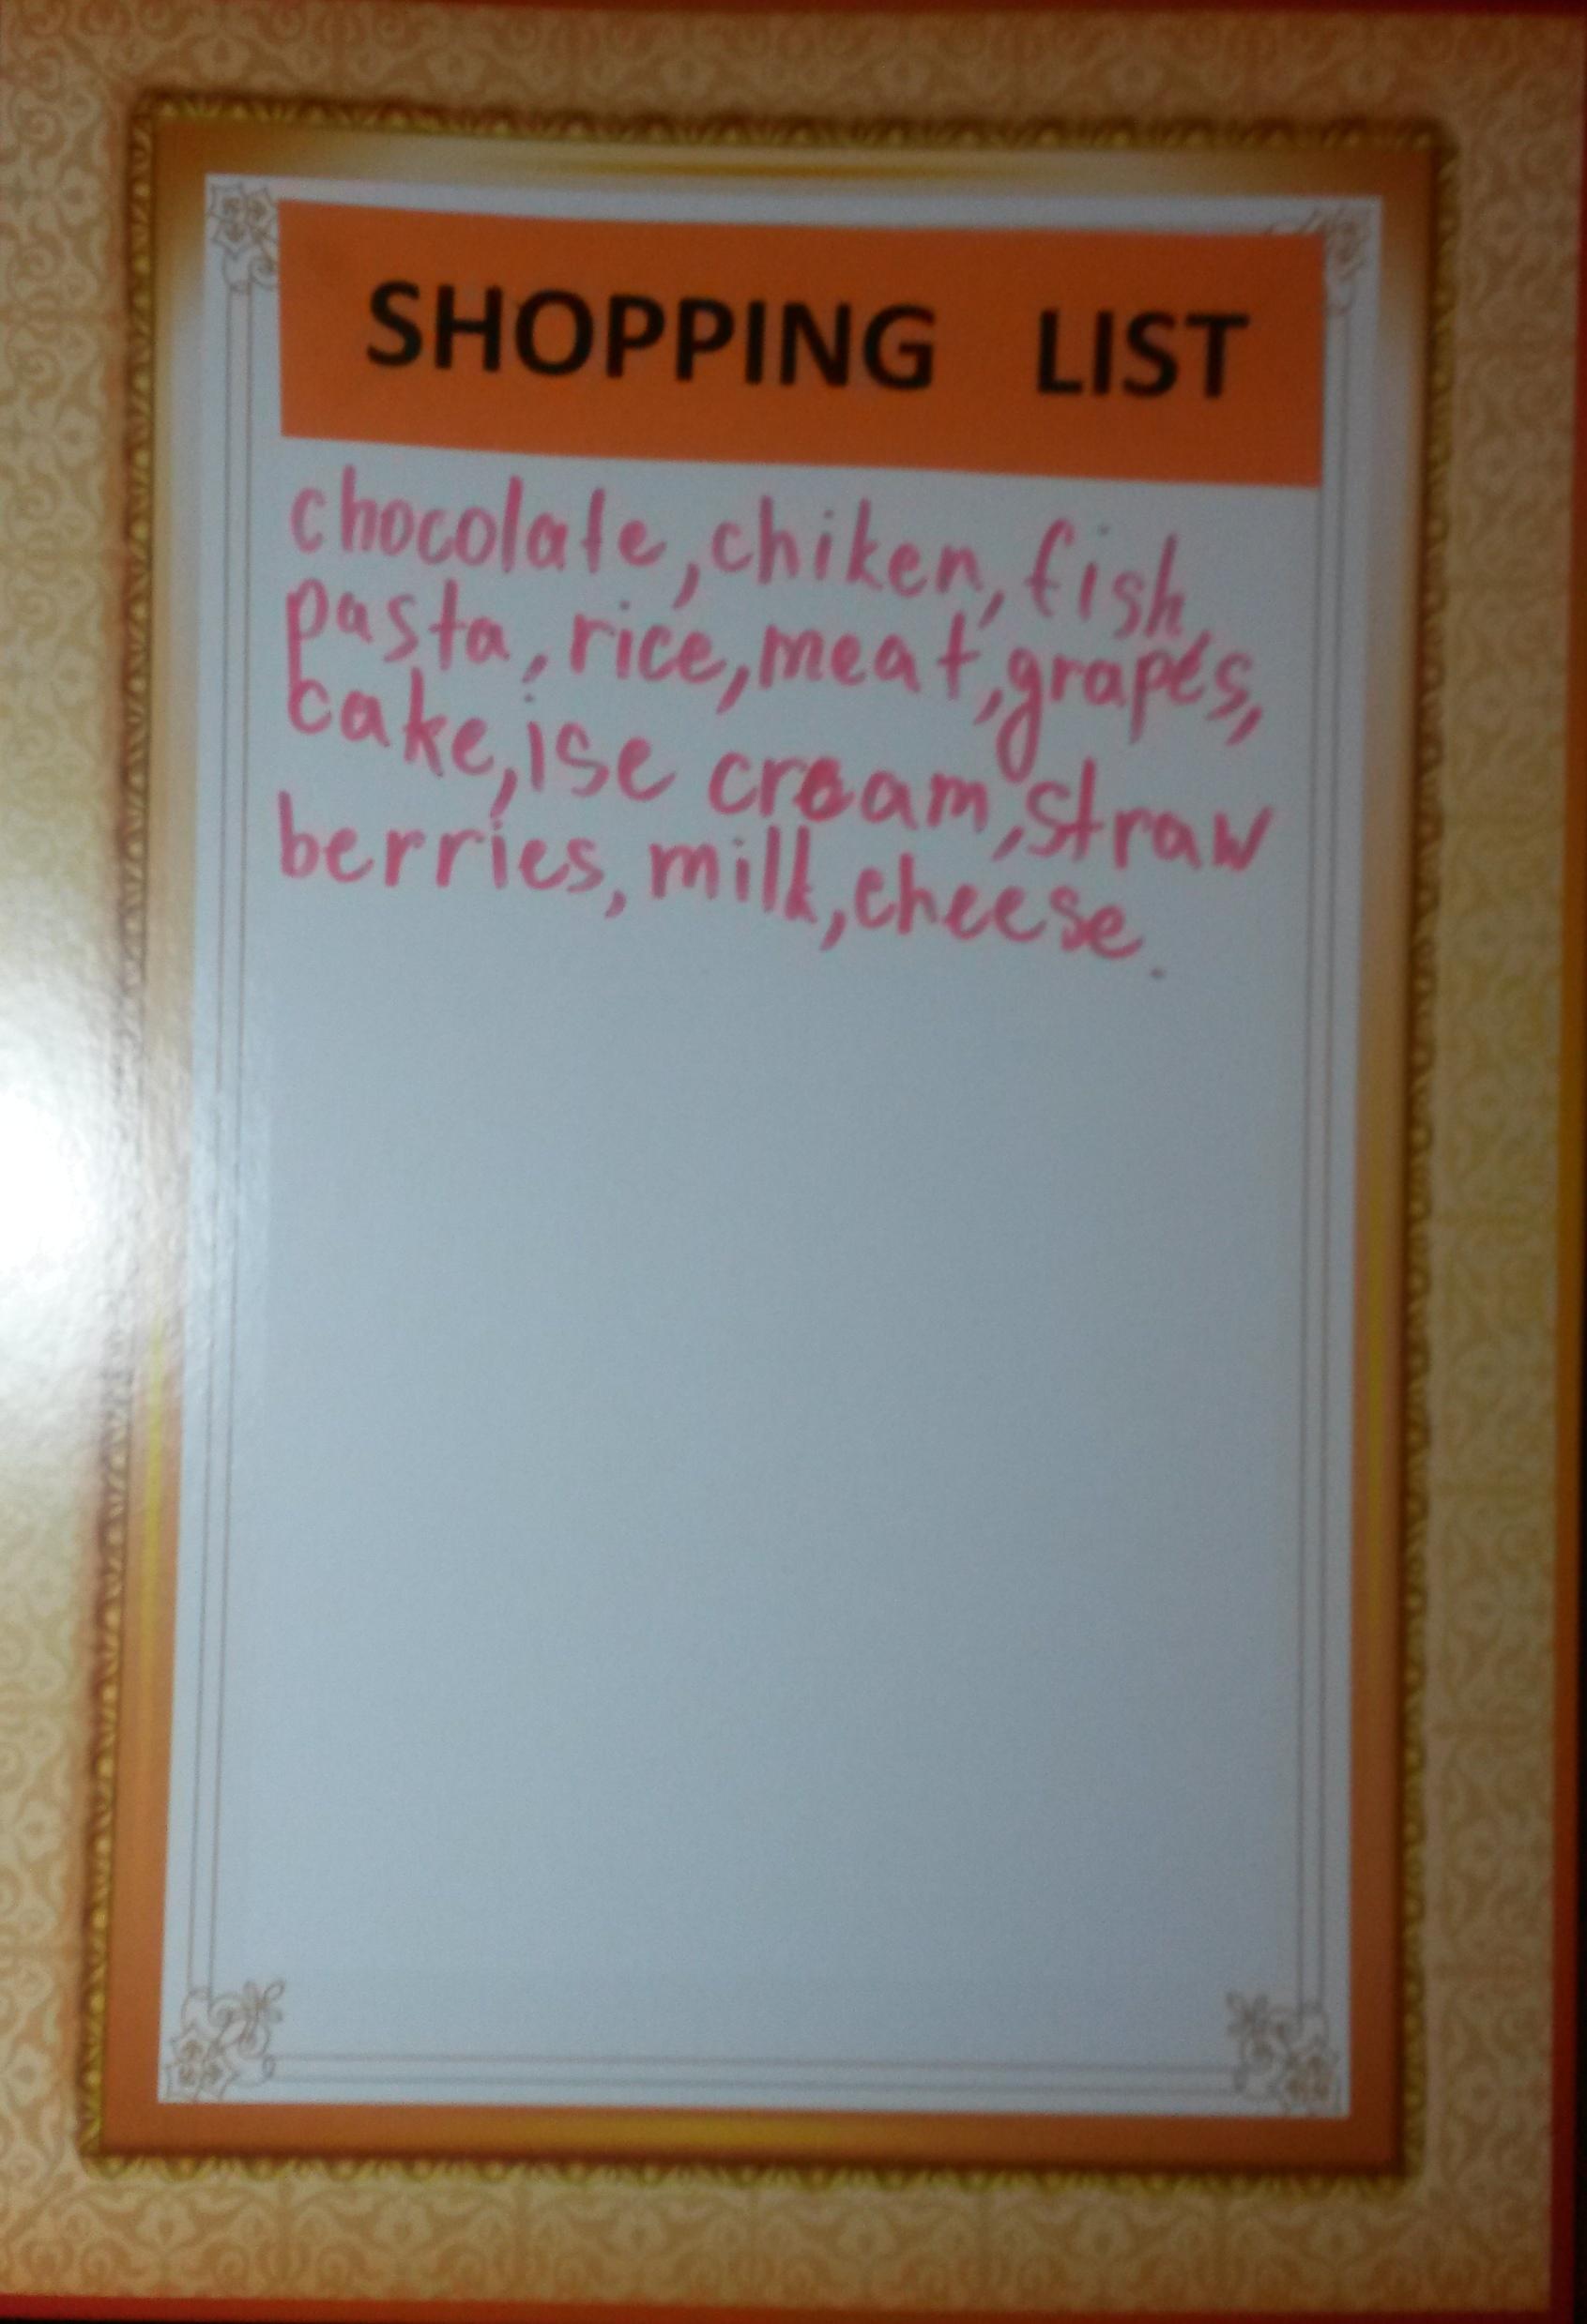 SHOPPING LIST
chocolate, chiken, fish,
pasta, rice, meat, grapes,
cake, ise cream, straw
berries, milk, cheese.